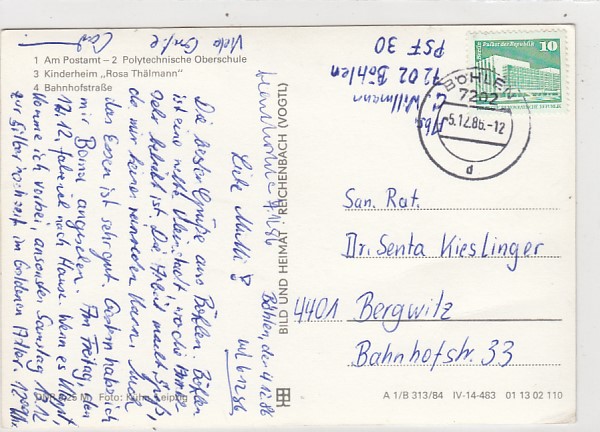 1 Am Postamt – 2 Polytechnische Oberschule
3 Kinderheim „Rosa Thälmann"
4 Bahnhofstraße
Böhlen, den 4.12.86
Liebe Mutti!
Die besten Grüße aus Böhlen. Böhlen
ist eine nette Kleinstadt, wo die
sehr ist. Die Arbeit macht Spaß,
da mir keiner reinreden kann. Auch
das Essen ist sehr gut. Gestern habe ich
mir Borna angesehen. Am Freitag, den
12.12. fahre ich nach Hause. Wenn es klappt,
komme ich vorbei, ansonsten Samstag
zur Silberhochzeit im Goldenen Adler. 12⁰⁰
Viele Grüße
BILD UND HEIMAT REICHENBACH (VOGTL)
Abs.
Willmann
7202 Böhlen
PSF 30
Palast der Republik
10
BÖHLEN
7202
-5.12.86.-12
d
San. Rat.
Dr. Senta Kieslinger
4401 Bergwitz
Bahnhofstr. 33
Foto: Kühn, Leipzig
A 1/B 313/84 IV-14-483 01 13 02 110